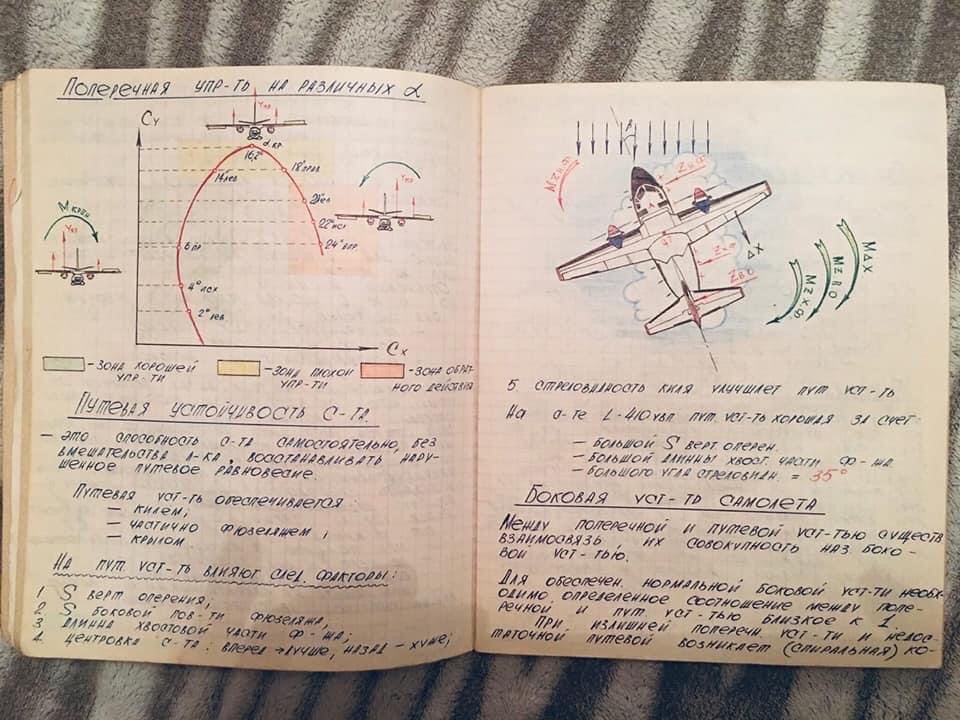 Поперечная упр-ть на различных α
Cy
Yпр
α кр.
16,2°
14°
18°
22°
24°
6
4°
2°
Mкрен
Yпр
Yпр
Cx
- зона хорошей упр-ти
- зона плохой упр-ти
- зона обратного действия
Путевая устойчивость с-та
- это способность с-та самостоятельно, без
вмешательства л-ка, восстанавливать нару-
шенное путевое равновесие.
Путевая уст-ть обеспечивается:
- килем;
- частично фюзеляжем;
- крылом.
На пут уст-ть влияют след. факторы:
1 S верт оперения;
2 S боковой пов-ти фюзеляжа;
3 длинна хвостовой части ф-жа;
4. центровка с-та: вперед → лучше, назад - хуже;
β
ΔX
MΔX
5 стреловидность киля улучшает пут уст-ть
На с-те L-410 увп пут. уст-ть хорошая за счет:
- большой S верт оперен.
- большой длинны хвост. части ф-жа.
- большого угла стреловидн. = 35°
Боковая уст-ть самолета
Между поперечной и путевой уст-тью существ
взаимосвязь, их совокупность наз боко-
вой уст-тью.
Для обеспечен. нормальной боковой уст-ти необх-
одимо определенное соотношение между попе-
речной и пут уст-тью близкое к 1.
При излишней поперечн. уст-ти и недос-
таточной путевой возникает (спиральная) ко-